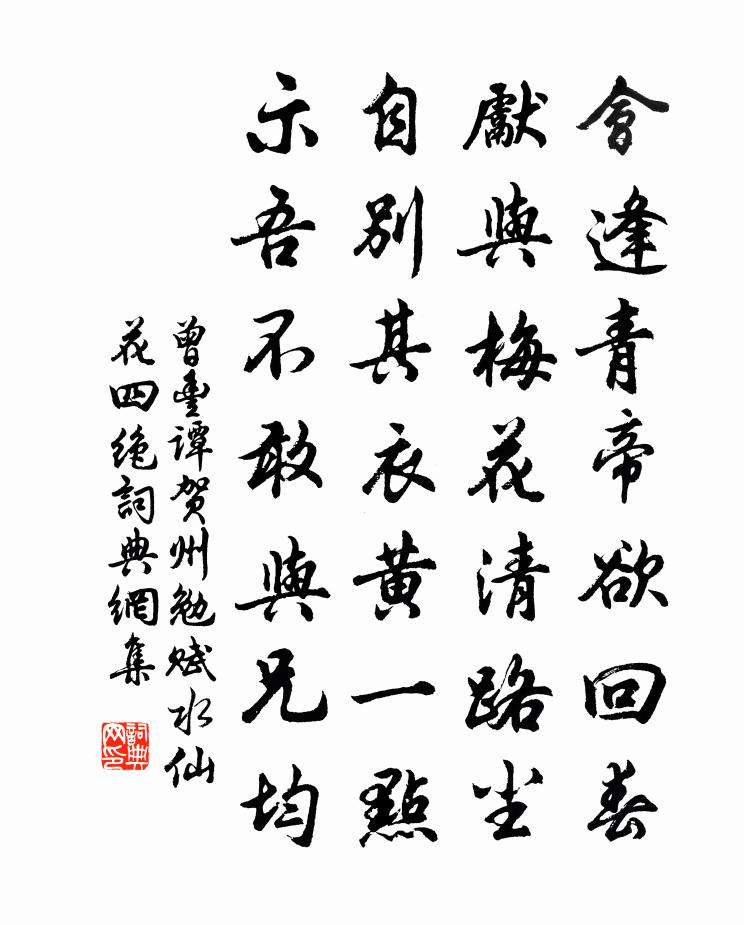 會逢青帝欲回春
獻與梅花清路尘
自別其衣黄一點
示吾不敢與兄均
曾豊譚贺州勉赋水仙
花四絶詞典網集
詞典
网印